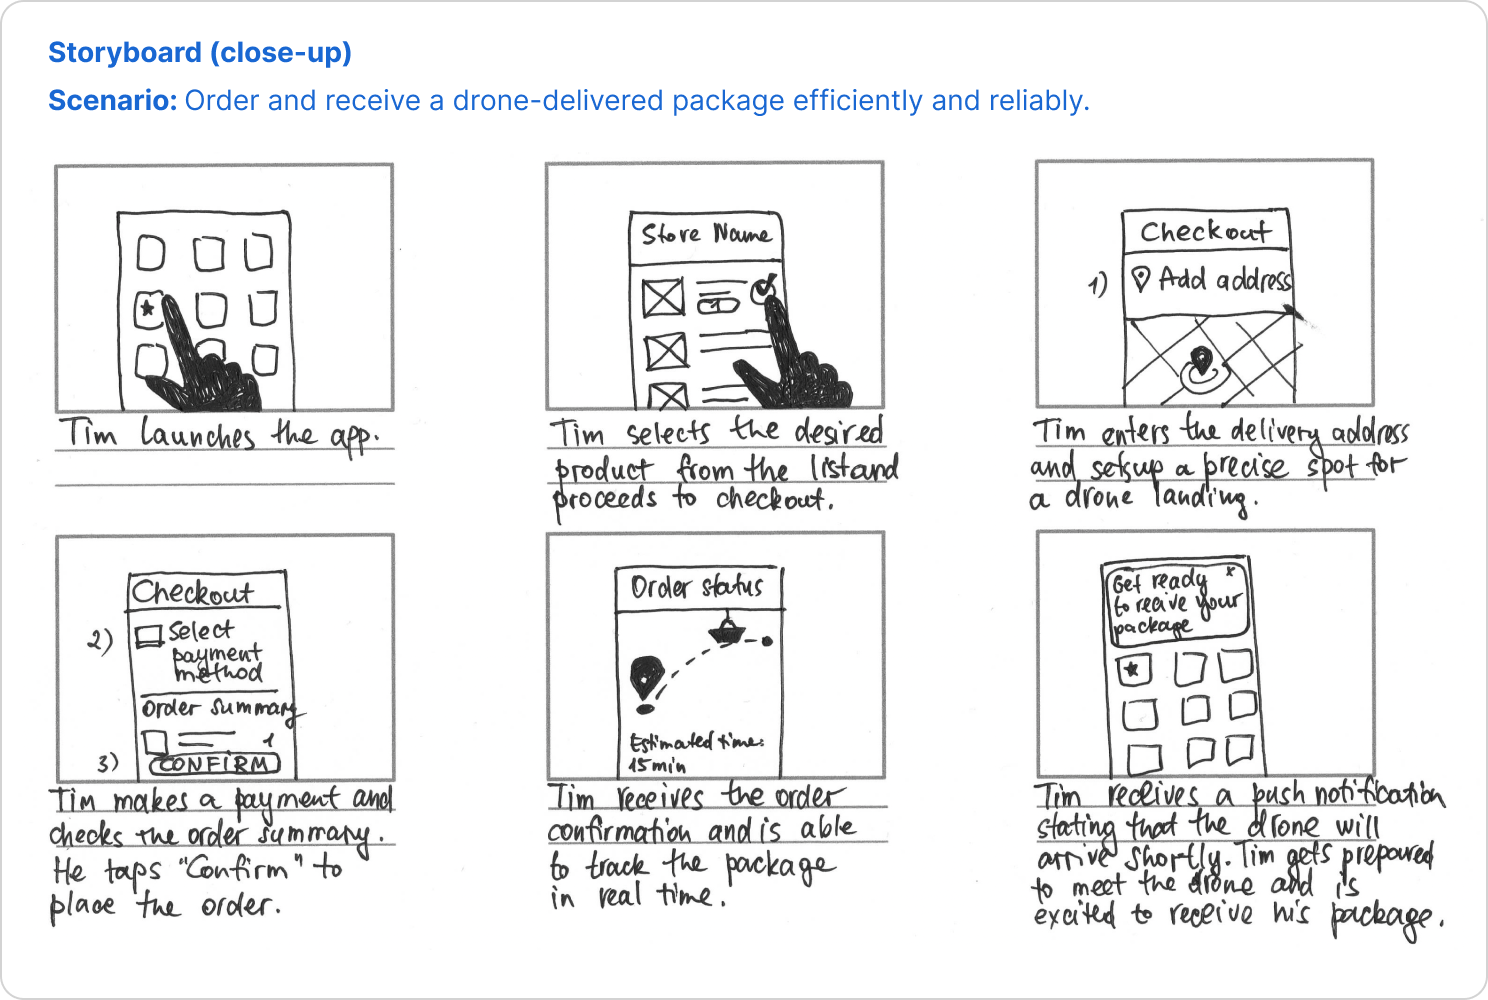 Storyboard (close-up)
Scenario: Order and receive a drone-delivered package efficiently and reliably.
Tim launches the app.
Store Name
1
Tim selects the desired
product from the list and
proceeds to checkout.
Checkout
1) Add address
Tim enters the delivery address
and sets up a precise spot for
a drone landing.
Checkout
2) Select
payment
method
Order summary
1
3) CONFIRM
Tim makes a payment and
checks the order summary.
He taps "Confirm" to
place the order.
Order status
Estimated time:
15 min
Tim receives the order
confirmation and is able
to track the package
in real time.
Get ready x
to reeive your
package
Tim receives a push notification
stating that the drone will
arrive shortly. Tim gets prepared
to meet the drone and is
excited to receive his package.